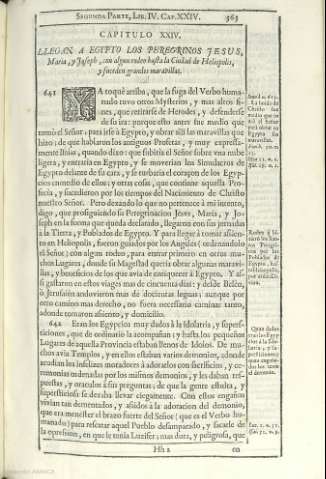 SEGUNDA PARTE, LIB. IV. CAP. XXIV. 363
CAPITULO XXIV.
LLEGAN A EGYPTO LOS PEREGRINOS JESUS,
Maria, y Joseph, con algun rodeo hasta la Ciudad de Heliopolis,
y suceden grandes maravillas.
641 YA toquè arriba, que la fuga del Verbo huma-
nado tuvo otros Mysterios, y mas altos fi-
nes, que retirarse de Herodes, y defenderse
de su ira: porque esto antes fue medio que
tomò el Señor, para irse à Egypto, y obrar allà las maravillas que
hizo; de que hablaron los antiguos Profetas, y muy expressa-
mente Isaias, quando dixo: que subiria el Señor sobre una nube
ligera, y entraria en Egypto, y se moverian los Simulacros de
Egypto delante de su cara, y se turbaria el coraçon de los Egyp-
cios enmedio de ellos: y otras cosas, que contiene aquella Pro-
fecia, y sucedieron por los tiempos del Nacimiento de Christo
nuestro Señor. Pero dexando lo que no pertenece à mi intento,
digo, que prosiguiendo su Peregrinacion Jesus, Maria, y Jo-
seph en la forma que queda declarado, llegaron con sus jornadas
à la Tierra, y Poblados de Egypto. Y para llegar à tomar assien-
to en Heliopolis, fueron guiados por los Angeles (ordenandolo
el Señor) con algun rodeo, para entrar primero en otros mu-
chos Lugares, donde su Magestad queria obrar algunas maravi-
llas, y beneficios de los que avia de enriquecer à Egypto. Y as-
si gastaron en estos viages mas de cinquenta dias: y desde Belèn,
ò Jerusalèn anduvieron mas de docientas leguas; aunque por
otro camino mas derecho, no fuera necessario caminar tanto,
adonde tomaron assiento, y domicilio.
642 Eran los Egypcios muy dados à la Idolatria, y supers-
ticiones, que de ordinario la acompañan; y hasta los pequeños
Lugares de aquella Provincia estaban llenos de Idolos. De mu-
chos avia Templos, y en ellos estaban varios demonios, adonde
acudian los infelizes moradores à adorarlos con sacrificios, y ce-
remonias ordenadas por los mismos demonios, y les daban res-
puestas, y oraculos à sus preguntas; de que la gente estulta, y
supersticiosa se dexaba llevar ciegamente. Con estos engaños
vivian tan dementados, y asidos à la adoracion del demonio,
que era menester el brazo fuerte del Señor (que es el Verbo hu-
manado) para rescatar aquel Pueblo desamparado, y sacarle de
la opresion, en que le tenia Lucifer; mas dura, y peligrosa, que
Hh 2 en